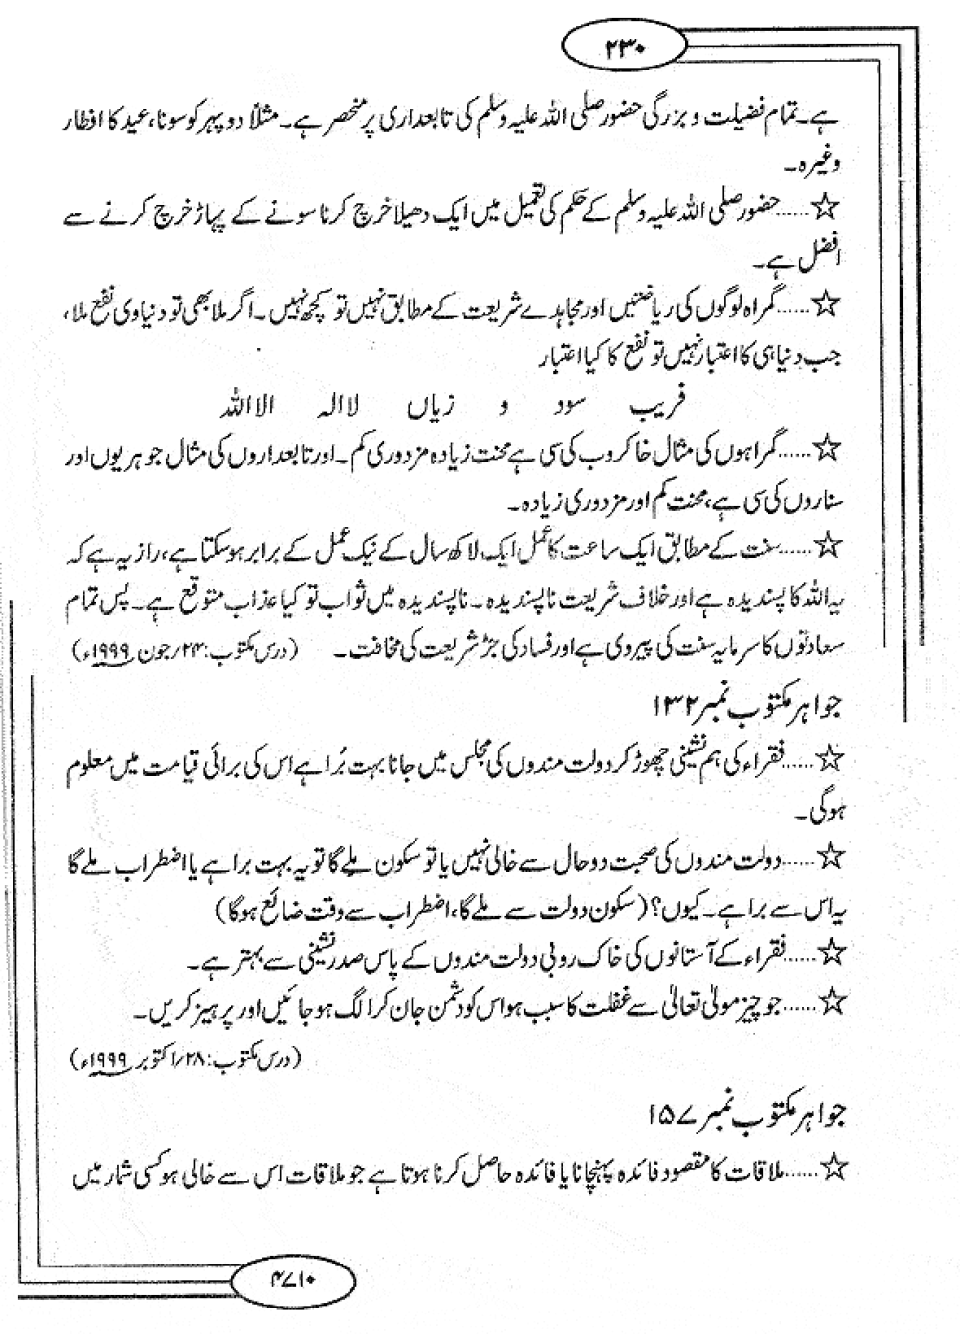 ۲۳۰
ہے۔ تمام فضیلت و بزرگی حضور صلی اللہ علیہ وسلم کی تابعداری پر منحصر ہے۔ مثلاً دوپہر کو سونا، عید کا افطار
وغیرہ۔
☆......حضور صلی اللہ علیہ وسلم کے حکم کی تعمیل میں ایک دھیلا خرچ کرنا سونے کے پہاڑ خرچ کرنے سے
افضل ہے۔
☆......گمراہ لوگوں کی ریاضتیں اور مجاہدے شریعت کے مطابق نہیں تو کچھ نہیں۔ اگر ملا بھی تو دنیاوی نفع ملا،
جب دنیا ہی کا اعتبار نہیں تو نفع کا کیا اعتبار
فریب سود و زیاں لا الہ الا اللہ
☆......گمراہوں کی مثال خاکروب کی سی ہے محنت زیادہ مزدوری کم۔ اور تابعداروں کی مثال جوہریوں اور
سناروں کی سی ہے، محنت کم اور مزدوری زیادہ۔
☆......سنت کے مطابق ایک ساعت کا عمل ایک لاکھ سال کے نیک عمل کے برابر ہو سکتا ہے، راز یہ ہے کہ
یہ اللہ کا پسندیدہ ہے اور خلاف شریعت ناپسندیدہ۔ ناپسندیدہ میں ثواب تو کیا عذاب متوقع ہے۔ پس تمام
سعادتوں کا سرمایہ سنت کی پیروی ہے اور فساد کی جڑ شریعت کی مخالفت۔ (درس مکتوب: ۲۴/جون ۱۹۹۹ء)
جواہر مکتوب نمبر ۱۳۲
☆......فقراء کی ہم نشینی چھوڑ کر دولت مندوں کی مجلس میں جانا بہت بُرا ہے اس کی برائی قیامت میں معلوم
ہوگی۔
☆......دولت مندوں کی صحبت دو حال سے خالی نہیں یا تو سکون ملے گا تو یہ بہت برا ہے یا اضطراب ملے گا
یہ اس سے برا ہے۔ کیوں؟ (سکون دولت سے ملے گا، اضطراب سے وقت ضائع ہوگا)
☆......فقراء کے آستانوں کی خاک روبی دولت مندوں کے پاس صدر نشینی سے بہتر ہے۔
☆......جو چیز مولیٰ تعالیٰ سے غفلت کا سبب ہو اس کو دشمن جان کر الگ ہو جائیں اور پرہیز کریں۔
(درس مکتوب: ۲۸/اکتوبر ۱۹۹۹ء)
جواہر مکتوب نمبر ۱۵۷
☆......ملاقات کا مقصود فائدہ پہنچانا یا فائدہ حاصل کرنا ہوتا ہے جو ملاقات اس سے خالی ہو کسی شمار میں
۴۷۱۰